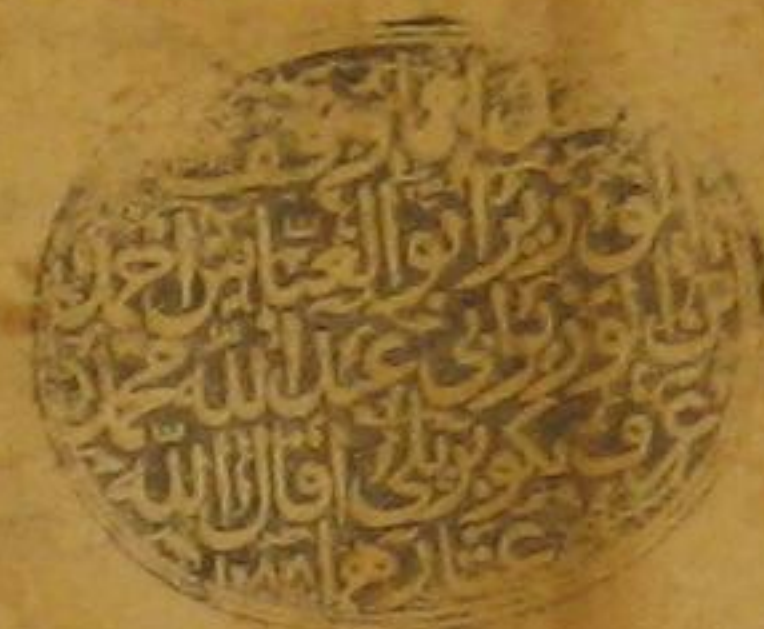 وقف
الوزير ابو العباس احمد
ابن الوزير ابي عبد الله محمد
عرف بكوبريلي اقال الله
عثارهما ١٠٨٨